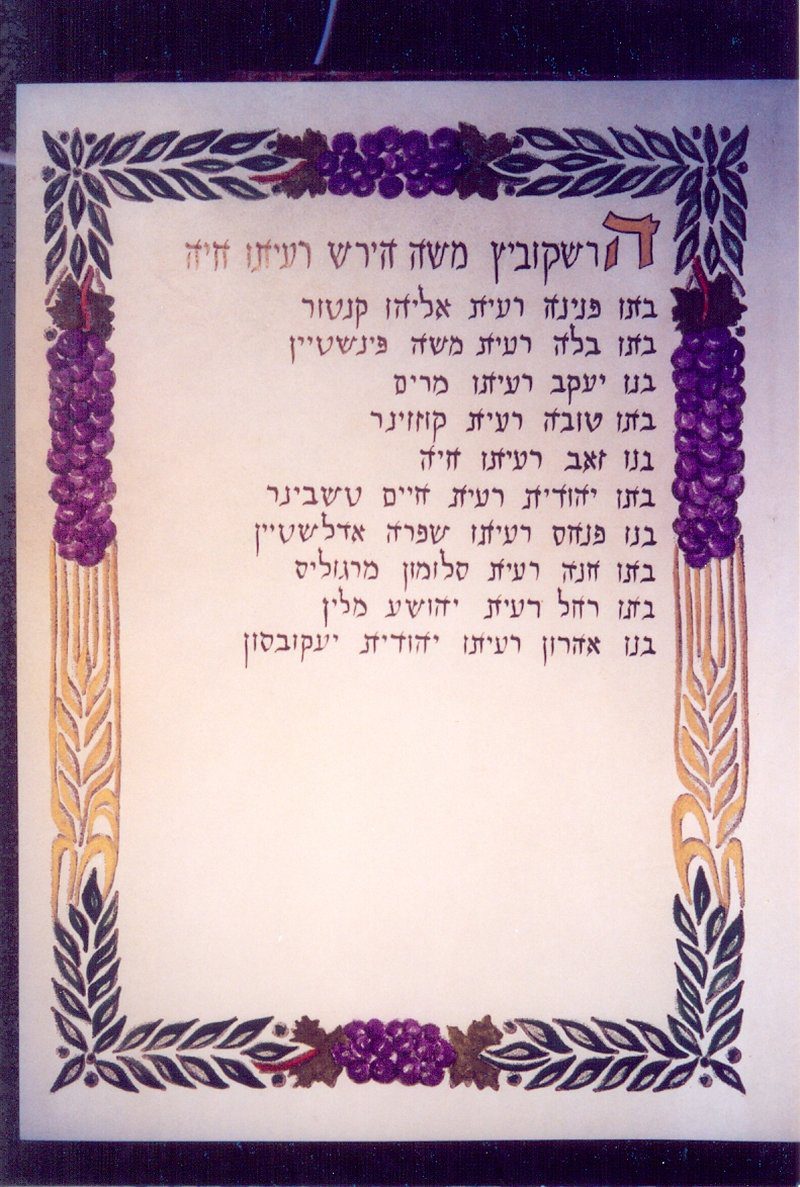 הרשקוביץ משה הירש רעיתו חיה
בתו פנינה רעית אליהו קנטור
בתו בלה רעית משה פינשטיין
בנו יעקב רעיתו מרים
בתו טובה רעית קוזזינר
בנו זאב רעיתו חיה
בתו יהודית רעית חיים טשבינר
בנו פנחס רעיתו שפרה אדלשטיין
בתו חנה רעית סלומון מרגוליס
בתו רחל רעית יהושע מלין
בנו אהרון רעיתו יהודית יעקובסון